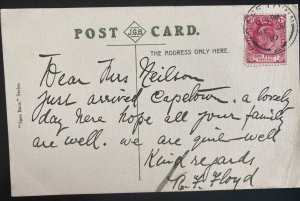 POST CARD.
THE ADDRESS ONLY HERE.
Dear Mrs Neilson
just arrived Capetown. a lovely
day here hope all your family
are well. we are quit well
Kind regards
Floyd